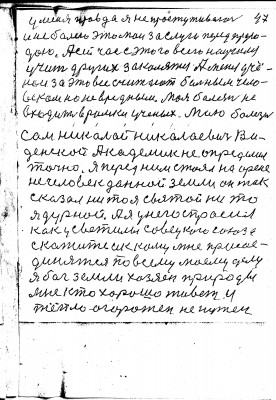 у меня правда я не проступившого 47
и не болею это моя заслуга перед приро-
дою. А ей час с этого всего научили
учит других закалятся А меня учё-
ные за это все считают больным чело-
веком но не вредным. Моя болезнь не
входит в рамки ученых. Мою болезнь
сам Николай Николаевич Ви-
денской Академик не определил
точно. Я перед ним стоял на арене
не человек данной земли он так
сказал ни то я святой ни то
я дурной. А я у него спросил
как у светилы Советского Союза
скажите к кому мне присое-
динятся по всему моему делу
я бог земли хозяин природы
мне кто хорошо живет и
тепло огорожен не нужен